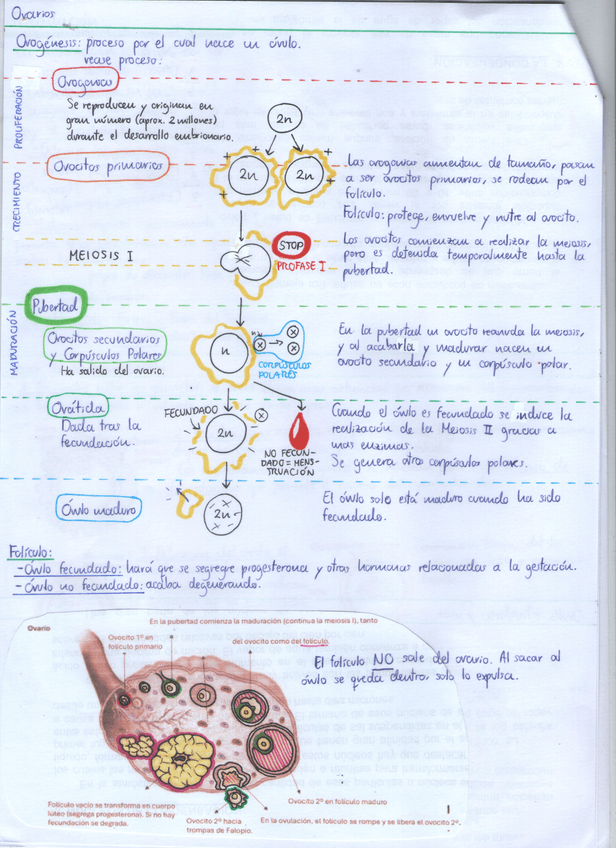 Ovarios
Ovogénesis: proceso por el cual nace un óvulo.
vease proceso:
Ovogonias
PROLIFERACIÓN
Se reproducen y originan en
gran número (aprox. 2 millones)
durante el desarrollo embrionario.
2n
Ovocitos primarios
CRECIMIENTO
+ + + +
2n 2n
Las ovogonias aumentan de tamaño, pasan
a ser ovocitos primarios, se rodean por el
folículo.
Folículo: protege, envuelve y nutre al ovocito.
MEIOSIS I
STOP
PROFASE I
Los ovocitos comienzan a realizar la meiosis,
pero es detenida temporalmente hasta la
pubertad.
Pubertad
MADURACIÓN
Ovocitos secundarios
y Corpúsculos Polares
Ha salido del ovario.
n
n
CORPÚSCULOS
POLARES
En la pubertad un ovocito reanuda la meiosis,
y al acabarla y madurar nacen un
ovocito secundario y un corpúsculo polar.
Ovátida
Dada tras la
fecundación.
FECUNDADO
2n
NO FECUN-
DADO = MENS-
TRUACIÓN
Cuando el óvulo es fecundado se induce la
realización de la Meiosis II gracias a
unas enzimas.
Se genera otros corpúsculos polares.
Óvulo maduro
2n
El óvulo solo está maduro cuando ha sido
fecundado.
Folículo:
- Óvulo fecundado: hará que se segregue progesterona y otras hormonas relacionadas a la gestación.
- Óvulo no fecundado: acaba degenerando.
Ovario
En la pubertad comienza la maduración (continua la meiosis I), tanto
del ovocito como del folículo.
Ovocito 1º en
folículo primario
El folículo NO sale del ovario. Al sacar al
óvulo se queda dentro, solo lo expulsa.
Folículo vacío se transforma en cuerpo
lúteo (segrega progesterona). Si no hay
fecundación se degrada.
Ovocito 2º hacia
trompas de Falopio.
Ovocito 2º en folículo maduro
En la ovulación, el folículo se rompe y se libera el ovocito 2º.